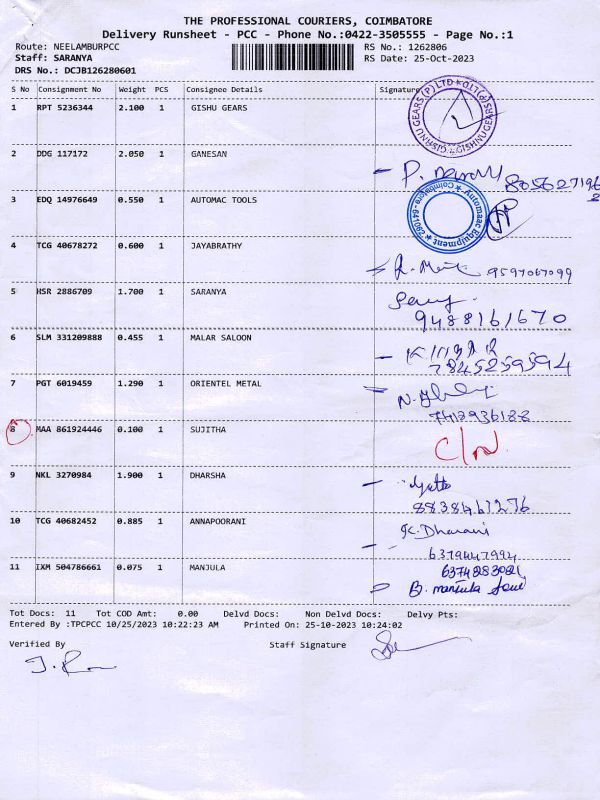 THE PROFESSIONAL COURIERS, COIMBATORE
Delivery Runsheet - PCC - Phone No.:0422-3505555 - Page No.:1
Route: NEELAMBURPCC RS No.: 1262806
Staff: SARANYA RS Date: 25-Oct-2023
DRS No.: DCJB126280601
S No Consignment No Weight PCS Consignee Details Signature
1 RPT 5236344 2.100 1 GISHU GEARS
2 DDG 117172 2.050 1 GANESAN
3 EDQ 14976649 0.550 1 AUTOMAC TOOLS
4 TCG 40678272 0.600 1 JAYABRATHY
9597067099
5 HSR 2886709 1.700 1 SARANYA
9488161670
6 SLM 331209888 0.455 1 MALAR SALOON
7845259594
7 PGT 6019459 1.290 1 ORIENTEL METAL
8 MAA 861924446 0.100 1 SUJITHA
9 NKL 3270984 1.900 1 DHARSHA
8838467276
10 TCG 40682452 0.885 1 ANNAPOORANI K. Dharani
6379447994
11 IXM 504786661 0.075 1 MANJULA 6374283081
B. manjula
Tot Docs: 11 Tot COD Amt: 0.00 Delvd Docs: Non Delvd Docs: Delvy Pts:
Entered By :TPCPCC 10/25/2023 10:22:23 AM Printed On: 25-10-2023 10:24:02
Verified By Staff Signature